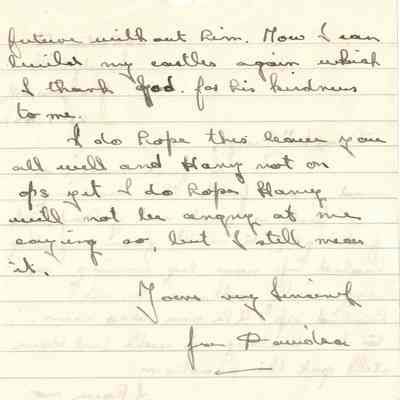 future without him. Now I can
build my castles again which
I thank God. for his kindness
to me.
I do hope this leaves you
all well and Harry not on
ops yet I do hope Harry
will not be angry at me
saying so, but I still mean
it.
Yours very Sincerely
from